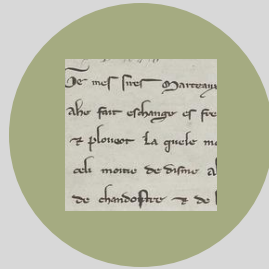 De mes sires Marteaus
alve fait eschange es fre
⁊ ploueot la quele mo
celi moitie de disme a
de chandostre ⁊ de l